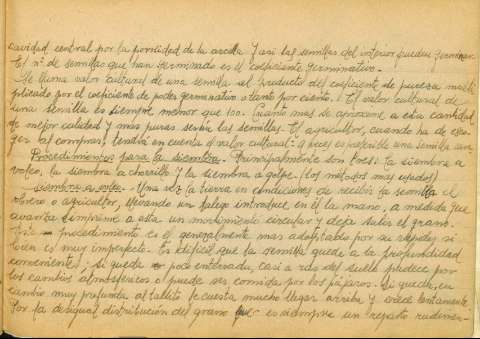 cavidad central por la porosidad de la arcilla y así las semillas del interior pueden germinar.
El nº de semillas que han germinado es el coeficiente germinativo.
Se llama valor cultural de una semilla al producto del coeficiente de pureza multi
plicado por el coeficiente de poder germinativo o tanto por ciento. El valor cultural de
una semilla es siempre menor que 100. Cuanto mas se aproxime a esta cantidad
de mejor calidad y mas puras serán las semillas. El agricultor, cuando ha de esco-
ger al comprar, tendrá en cuenta el valor cultural: a veces es preferible una semilla
Procedimientos para la siembra. Principalmente son tres: la siembra a
voleo, la siembra a chorrillo y la siembra a golpe. (Los métodos mas usados)
siembra a voleo. Una vez la tierra en condiciones de recibir la semilla el
obrero o agricultor, llevando un talego introduce en él la mano, a medida que
avanza e imprime a esta un movimiento circular y deja salir el grano.
Este procedimiento es el generalmente mas adoptado por su rapidez si
bien es muy imperfecto. Es dificil que la semilla quede a la profundidad
conveniente; si queda poco enterrada, casi a ras del suelo padece por
los cambios atmosféricos o puede ser comida por los pájaros. Si queda, en
cambio muy profunda al tallito le cuesta mucho llegar arriba y crece lentamente
Por la desigual distribución del grano que es siempre un reparto rudimen-